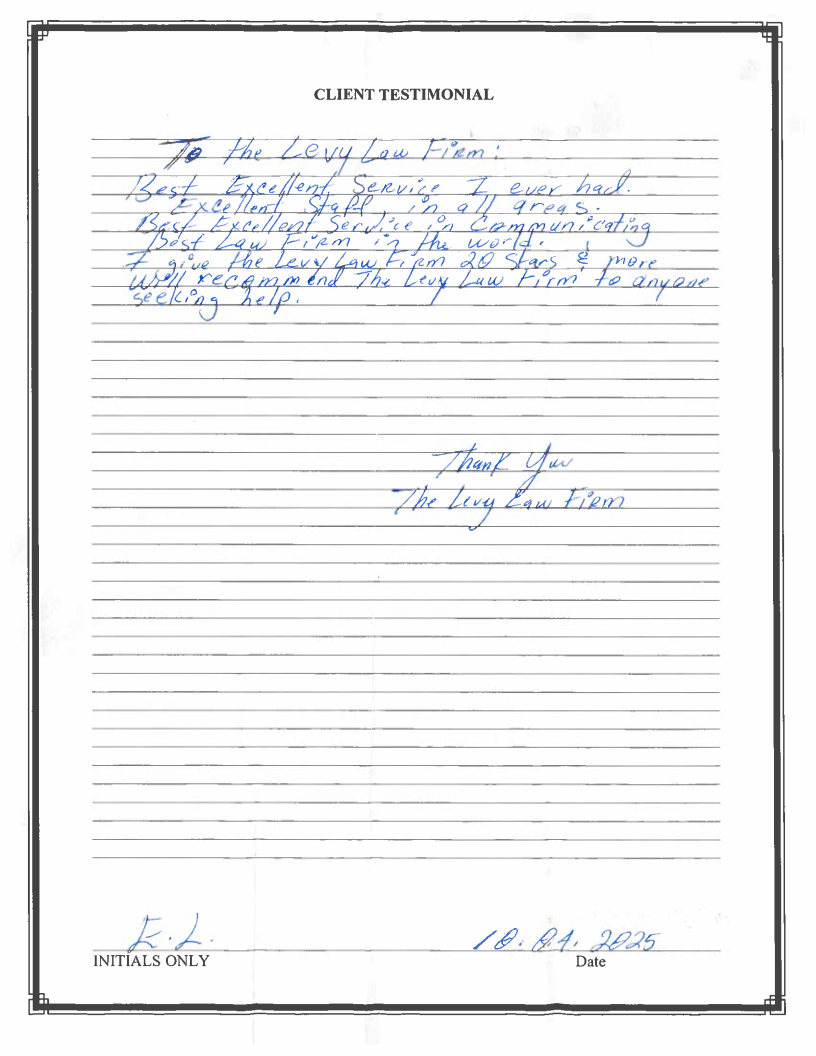 CLIENT TESTIMONIAL
To the Levy Law Firm:
Best Excellent Service I ever had.
Excellent Staff, in all areas.
Best Excellent Service in Communicating
Best Law Firm in the world.
I give the Levy Law Firm 20 Stars & more
Will recommend The Levy Law Firm to anyone
seeking help.
Thank You
The Levy Law Firm
E.L. 10.04.2025
INITIALS ONLY Date